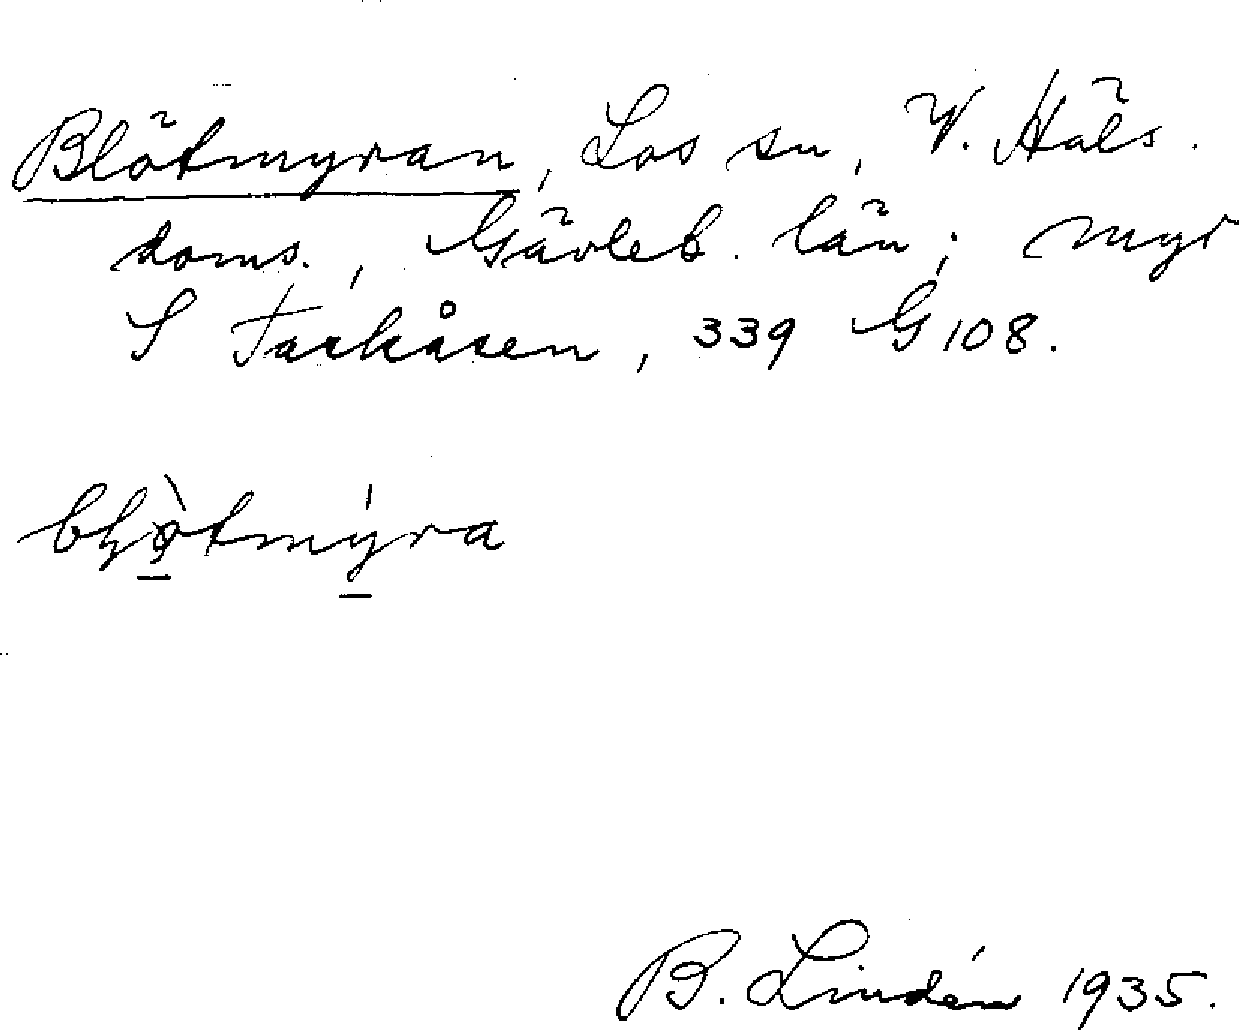 Blötmyran, Los sn, V. Häls.
doms., Gävleb. län; myr
S Tackåsen, 339 G 108.
B. Lindén 1935.